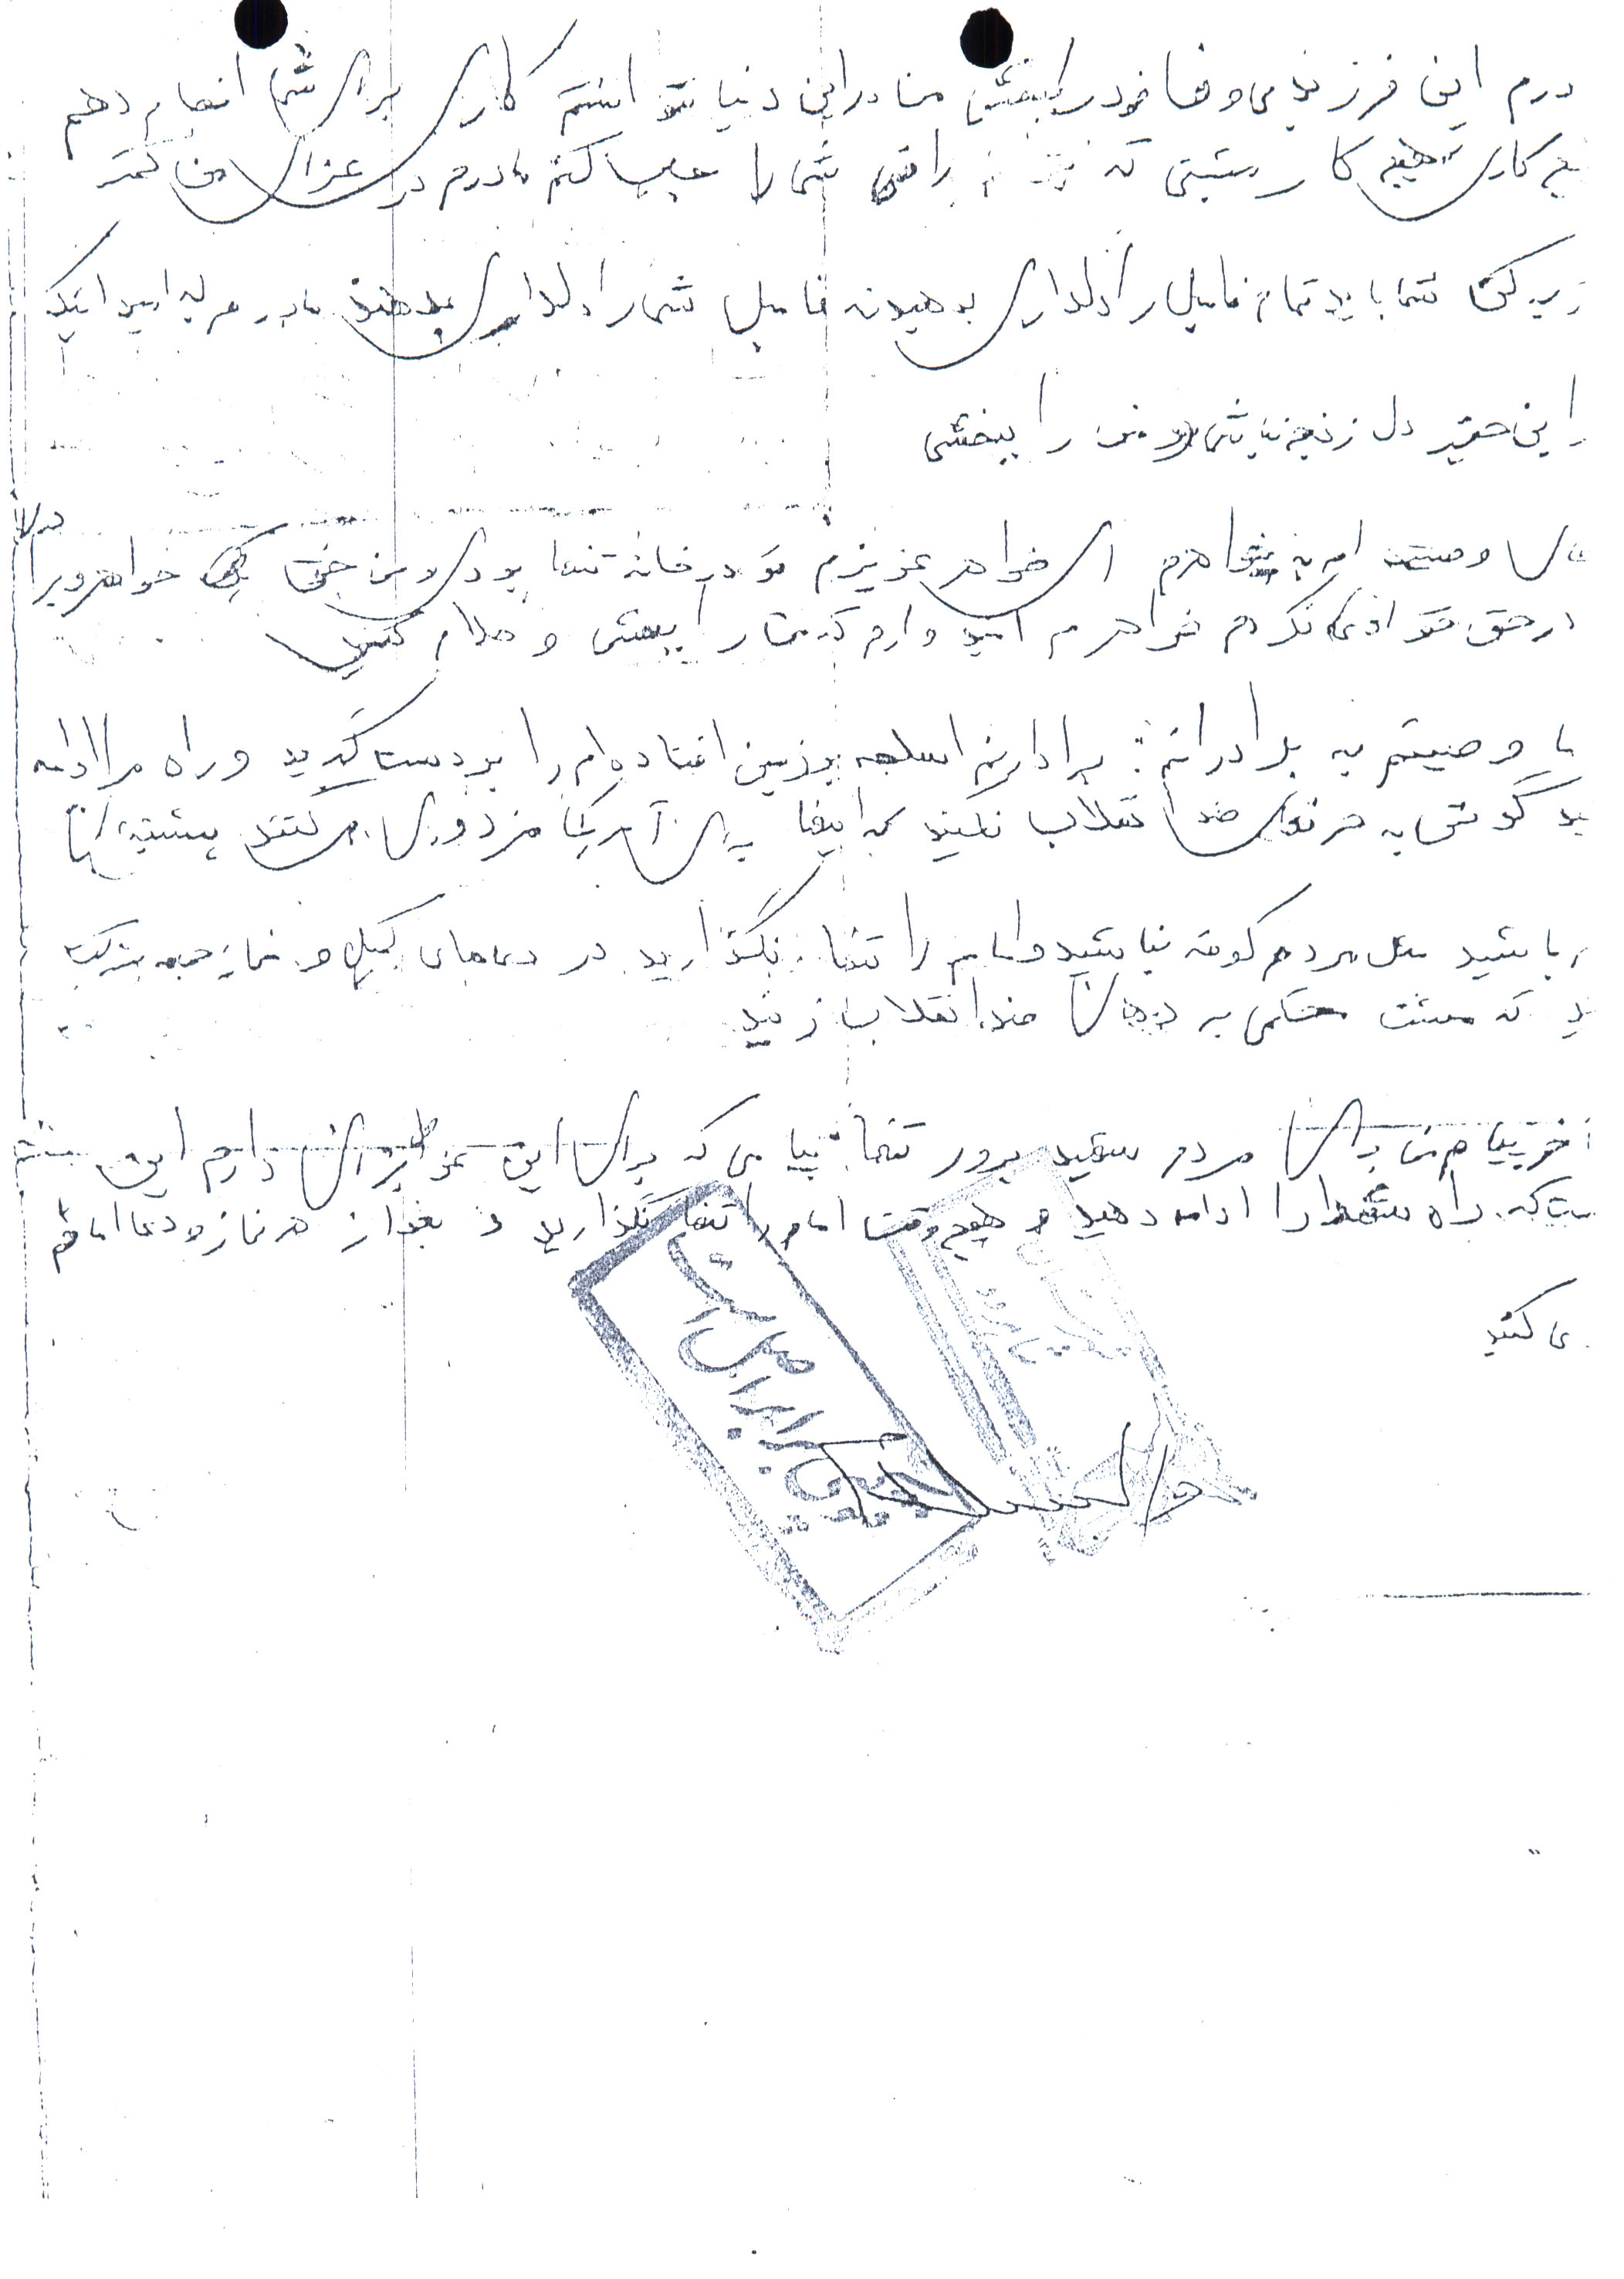 درم این فرزند بی وفا خود را ببخش من در این دنیا نتوانستم کاری برای شما انجام دهم
کاری نه هیچ کار مثبتی که راضی شما را کنم مادرم در عزای من کمتر
کن شما باید تمام فامیل را دلداری بدهید نه فامیل شما را دلداری بدهند مادرم به امید اینکه
این حقیر دل را ببخشی
وصیت ام به خواهرم ای خواهر عزیزم تو در خانه تنها بودی و من حق یک خواهر و برادری
در حق تو ادا نکردم خواهرم امید وارم که مرا ببخشی و حلام کنید
وصیتم به برادرانم: برادارنم اسلحه بر زمین افتاده ام را بر دست گیرید و راه مرا ادامه
گوش به حرفهای ضد انقلاب نکنید که اینها برای آمریکا مزدوری می کنند
باشید مثل مردم کوفه نباشید و امام را تنها نگذارید در دعاهای کمیل و نماز جمعه شرکت
که مشت محکمی به دهان ضد انقلاب زنید
آخر پیام من برای مردم شهید پرور تنها پیامی که برای این عزیزان دارم این
ست که راه شهدا را ادامه دهید و هیچ وقت امام را تنها نگذارید و بعد از هر نماز و دعا امام
ی کنید
والسلام